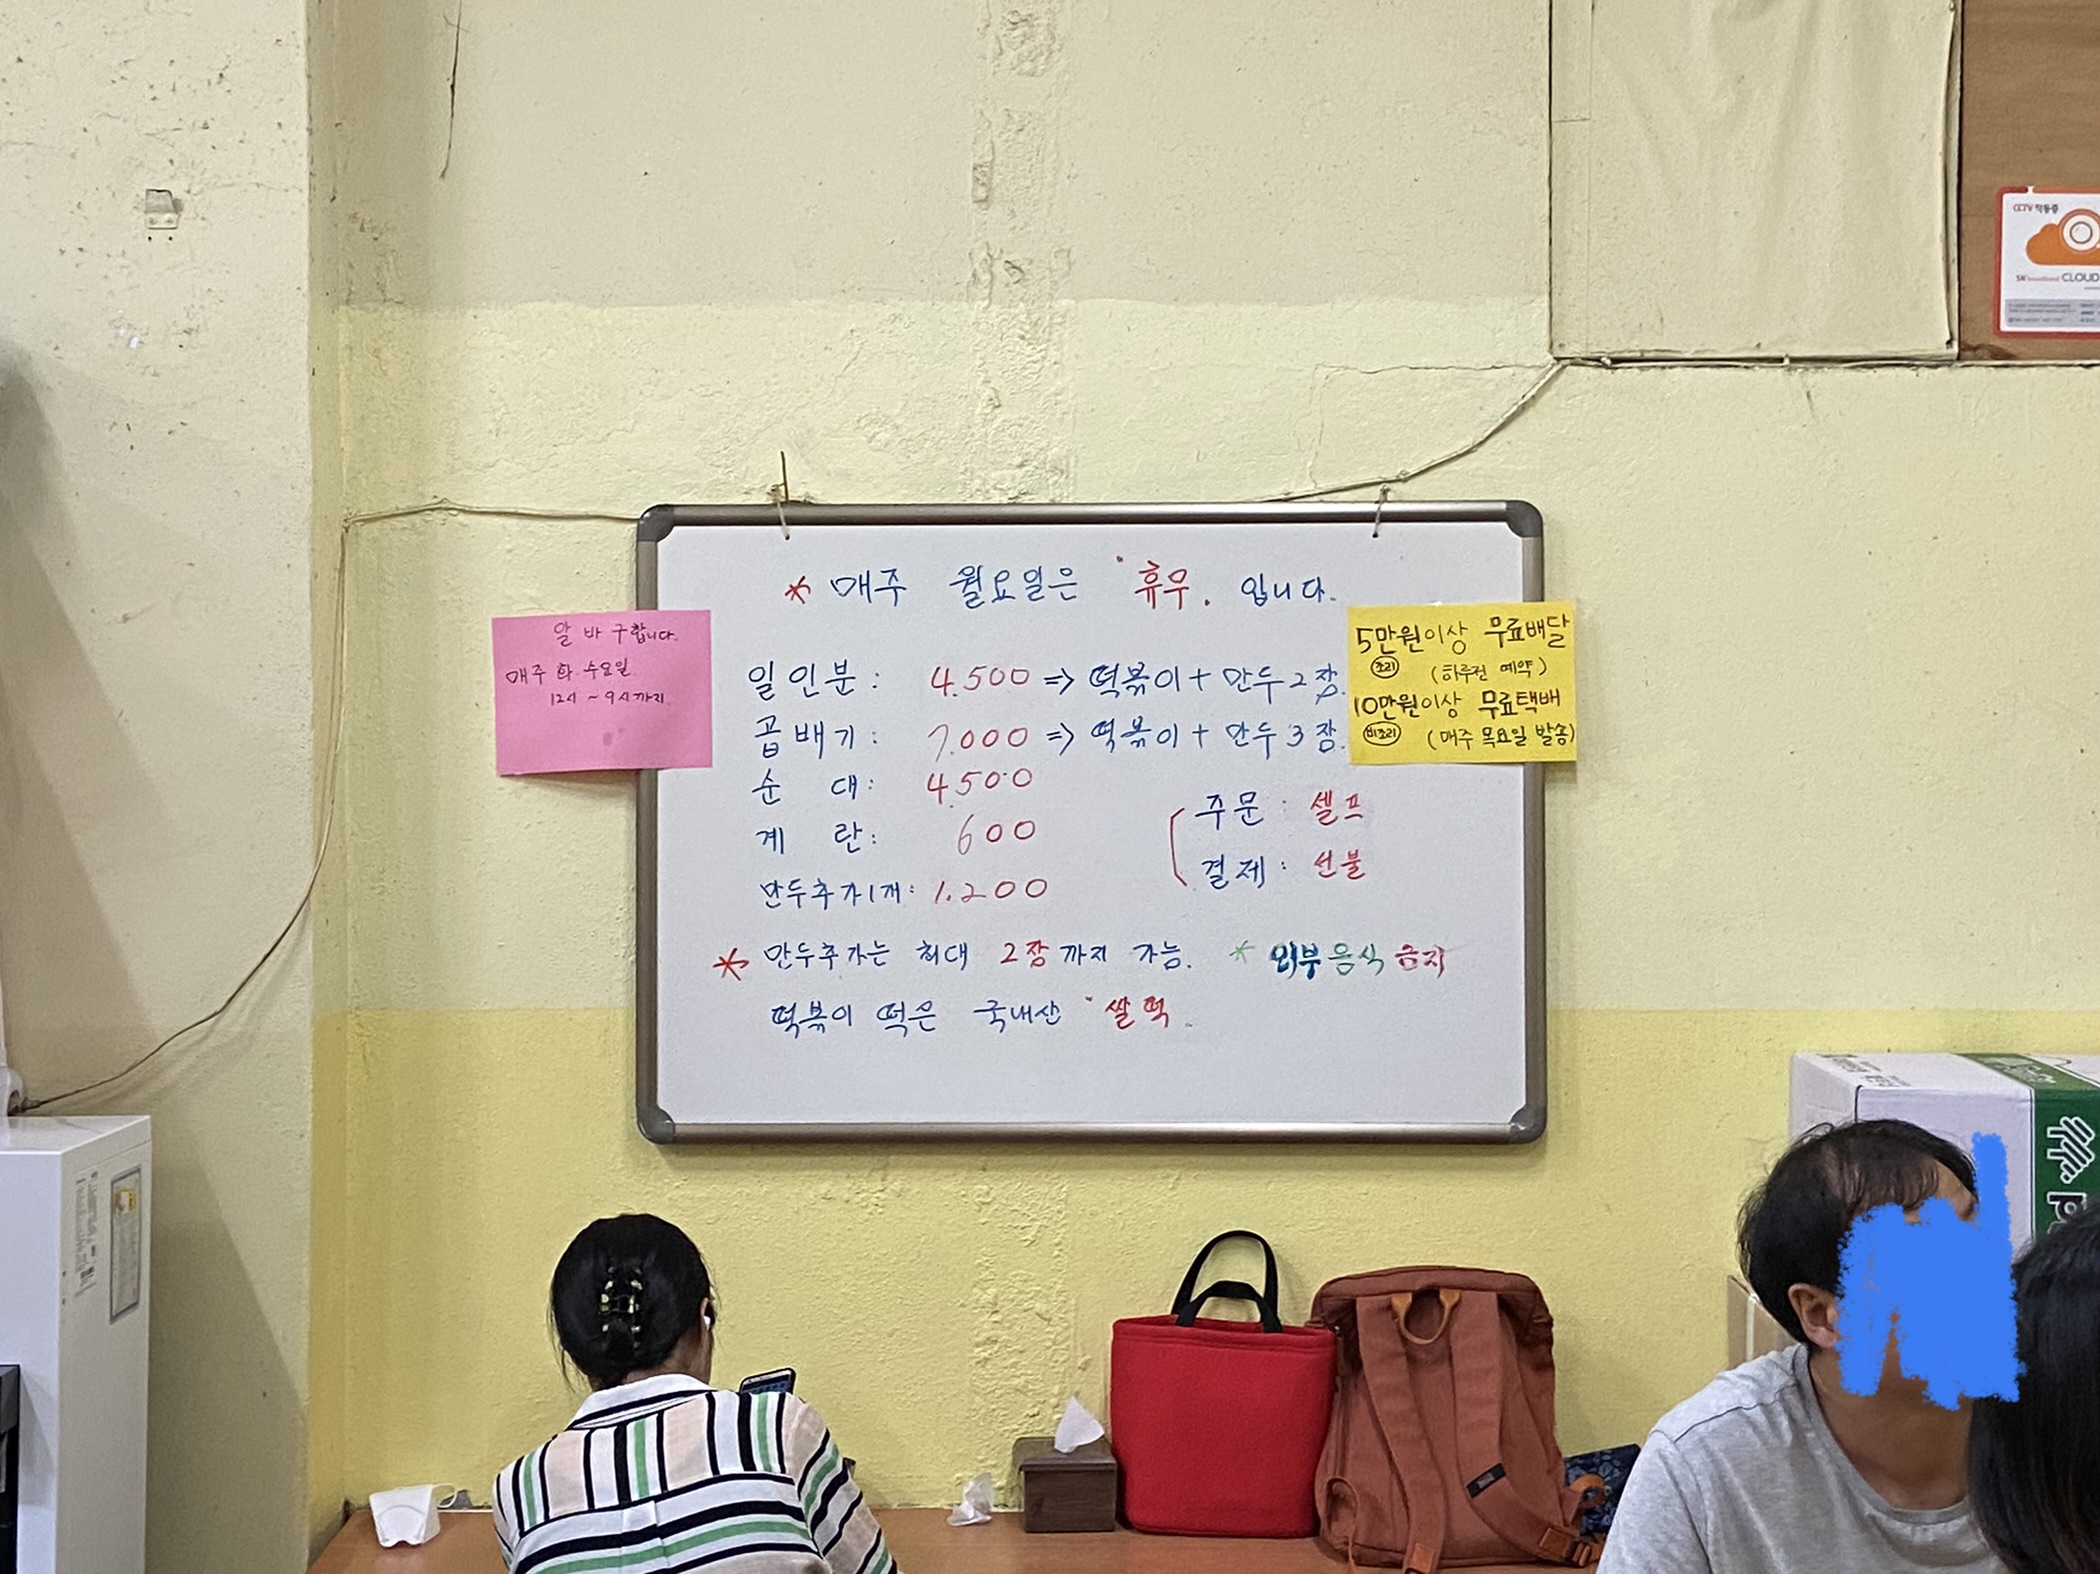 * 매주 월요일은 "휴무. 입니다.
일인분: 4.500 => 떡볶이 + 만두 2장.
곱배기: 7.000 => 떡볶이 + 만두 3장.
순 대: 4.500
계 란: 600
만두추가1개: 1.200
주문: 셀프
결제: 선불
* 만두추가는 최대 2장까지 가능. * 외부음식 금지
떡볶이 떡은 국내산 "쌀떡.
알바 구합니다.
매주 화 수요일
12시 ~ 9시까지.
5만원이상 무료배달
조리 (하루전 예약)
10만원이상 무료택배
비조리 (매주 목요일 발송)
CCTV 작동중
SK broadband CLOUD